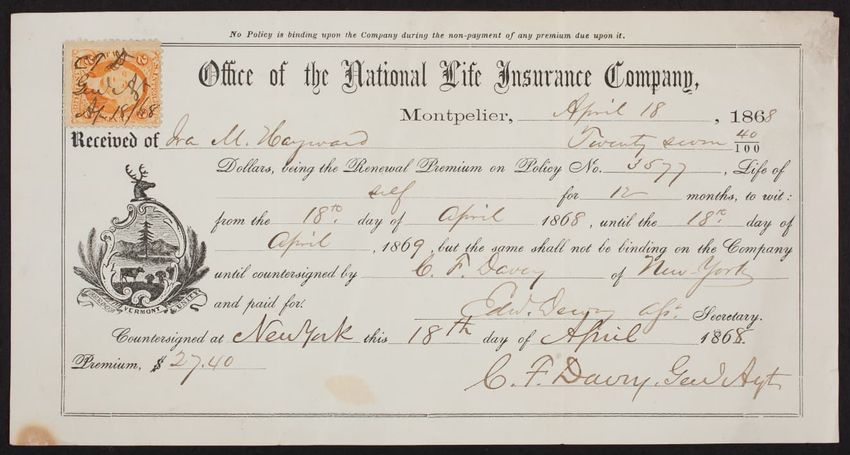 No Policy is binding upon the Company during the non-payment of any premium due upon it.
Office of the National Life Insurance Company,
Gen'l Agt
Apr 18/68
Montpelier, April 18, 1868
Received of Ira M. Hayward Twenty seven 40/100
Dollars, being the Renewal Premium on Policy No. 3577, Life of
self for 12 months, to wit:
from the 18th day of April 1868, until the 18th day of
April, 1869, but the same shall not be binding on the Company
until countersigned by C. F. Davey of New York
and paid for:
Edw. Dewey Asst. Secretary.
FREEDOM VERMONT & UNITY
Countersigned at New York this 18th day of April 1868.
Premium, $27.40
C. F. Davey, Gen'l Agt